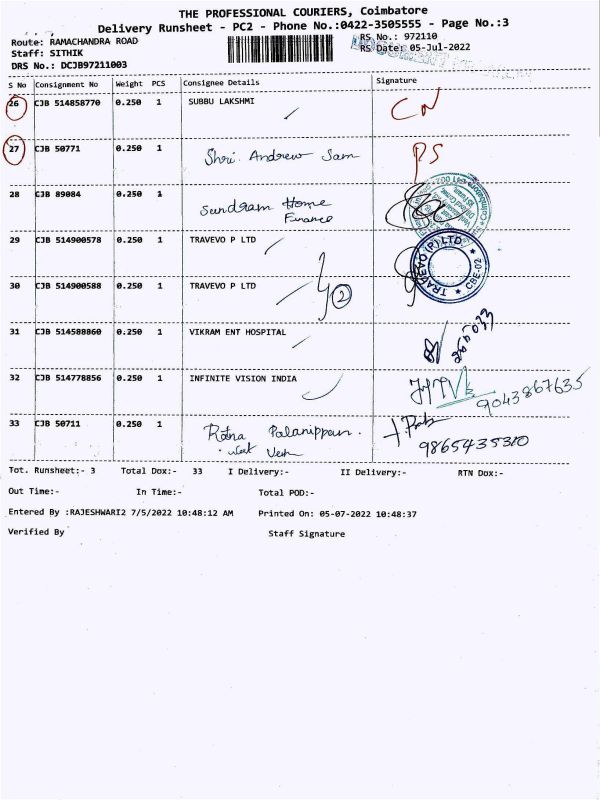 THE PROFESSIONAL COURIERS, Coimbatore
Delivery Runsheet - PC2 - Phone No.:0422-3505555 - Page No.:3
Route: RAMACHANDRA ROAD
RS No.: 972110
Staff: SITHIK
RS Date: 05-Jul-2022
DRS No.: DCJB97211003
S No Consignment No Weight PCS Consignee Details Signature
26 CJB 514858770 0.250 1 SUBBU LAKSHMI CN
27 CJB 50771 0.250 1 Shri. Andrew Sam PS
28 CJB 89084 0.250 1 Sundram Home
Finance
29 CJB 514900578 0.250 1 TRAVEVO P LTD
TRAVEVO (P) LTD
CBE-02
30 CJB 514900588 0.250 1 TRAVEVO P LTD
2
31 CJB 514588860 0.250 1 VIKRAM ENT HOSPITAL
32 CJB 514778856 0.250 1 INFINITE VISION INDIA
9043867635
33 CJB 50711 0.250 1 Ratna Palanippan.
9865435310
Tot. Runsheet:- 3 Total Dox:- 33 I Delivery:- II Delivery:- RTN Dox:-
Out Time:- In Time:- Total POD:-
Entered By :RAJESHWARI2 7/5/2022 10:48:12 AM Printed On: 05-07-2022 10:48:37
Verified By Staff Signature